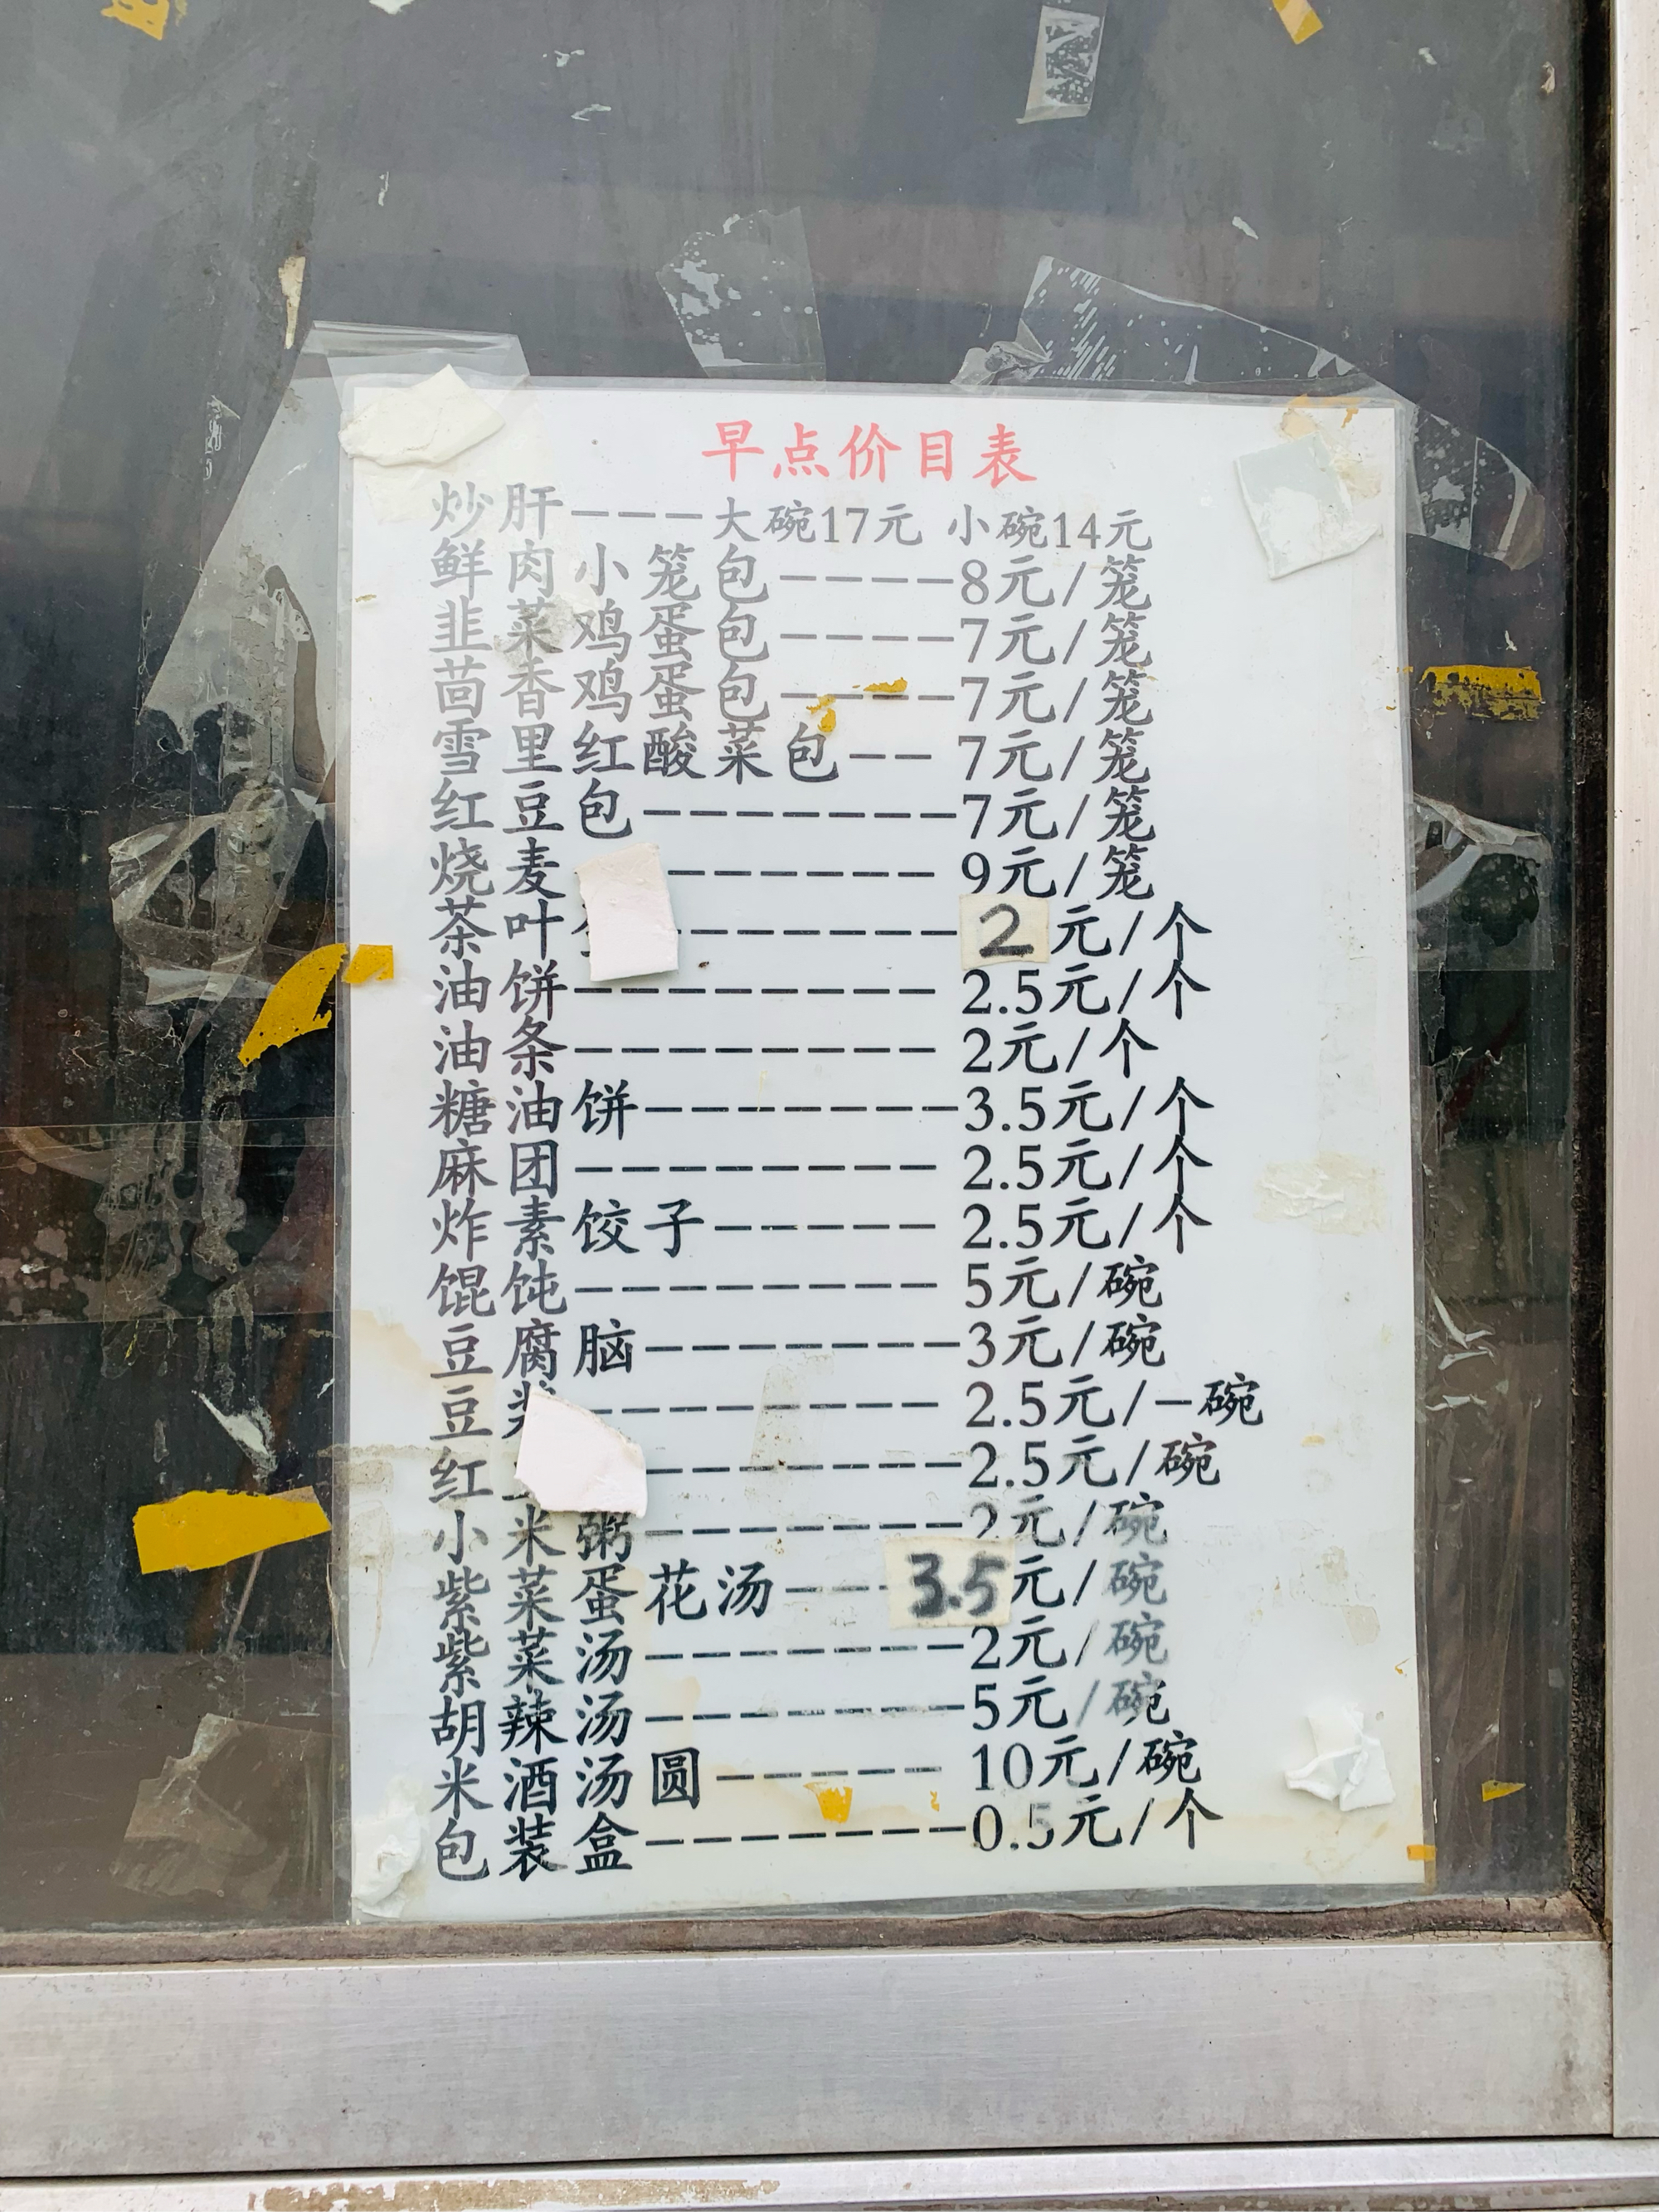 早点价目表
炒肝---大碗17元 小碗14元
鲜肉小笼包----8元/笼
韭菜鸡蛋包----7元/笼
茴香鸡蛋包----7元/笼
雪里红酸菜包-- 7元/笼
红豆包-------7元/笼
烧麦------ 9元/笼
茶叶-------2元/个
油饼-------- 2.5元/个
油条-------- 2元/个
糖油饼-------3.5元/个
麻团-------- 2.5元/个
炸素饺子----- 2.5元/个
馄饨-------- 5元/碗
豆腐脑-------3元/碗
豆-------- 2.5元/-碗
红-------2.5元/碗
小米粥-------2元/碗
紫菜蛋花汤---3.5元/碗
紫菜汤-------2元/碗
胡辣汤-------5元/碗
米酒汤圆----- 10元/碗
包装盒-------0.5元/个